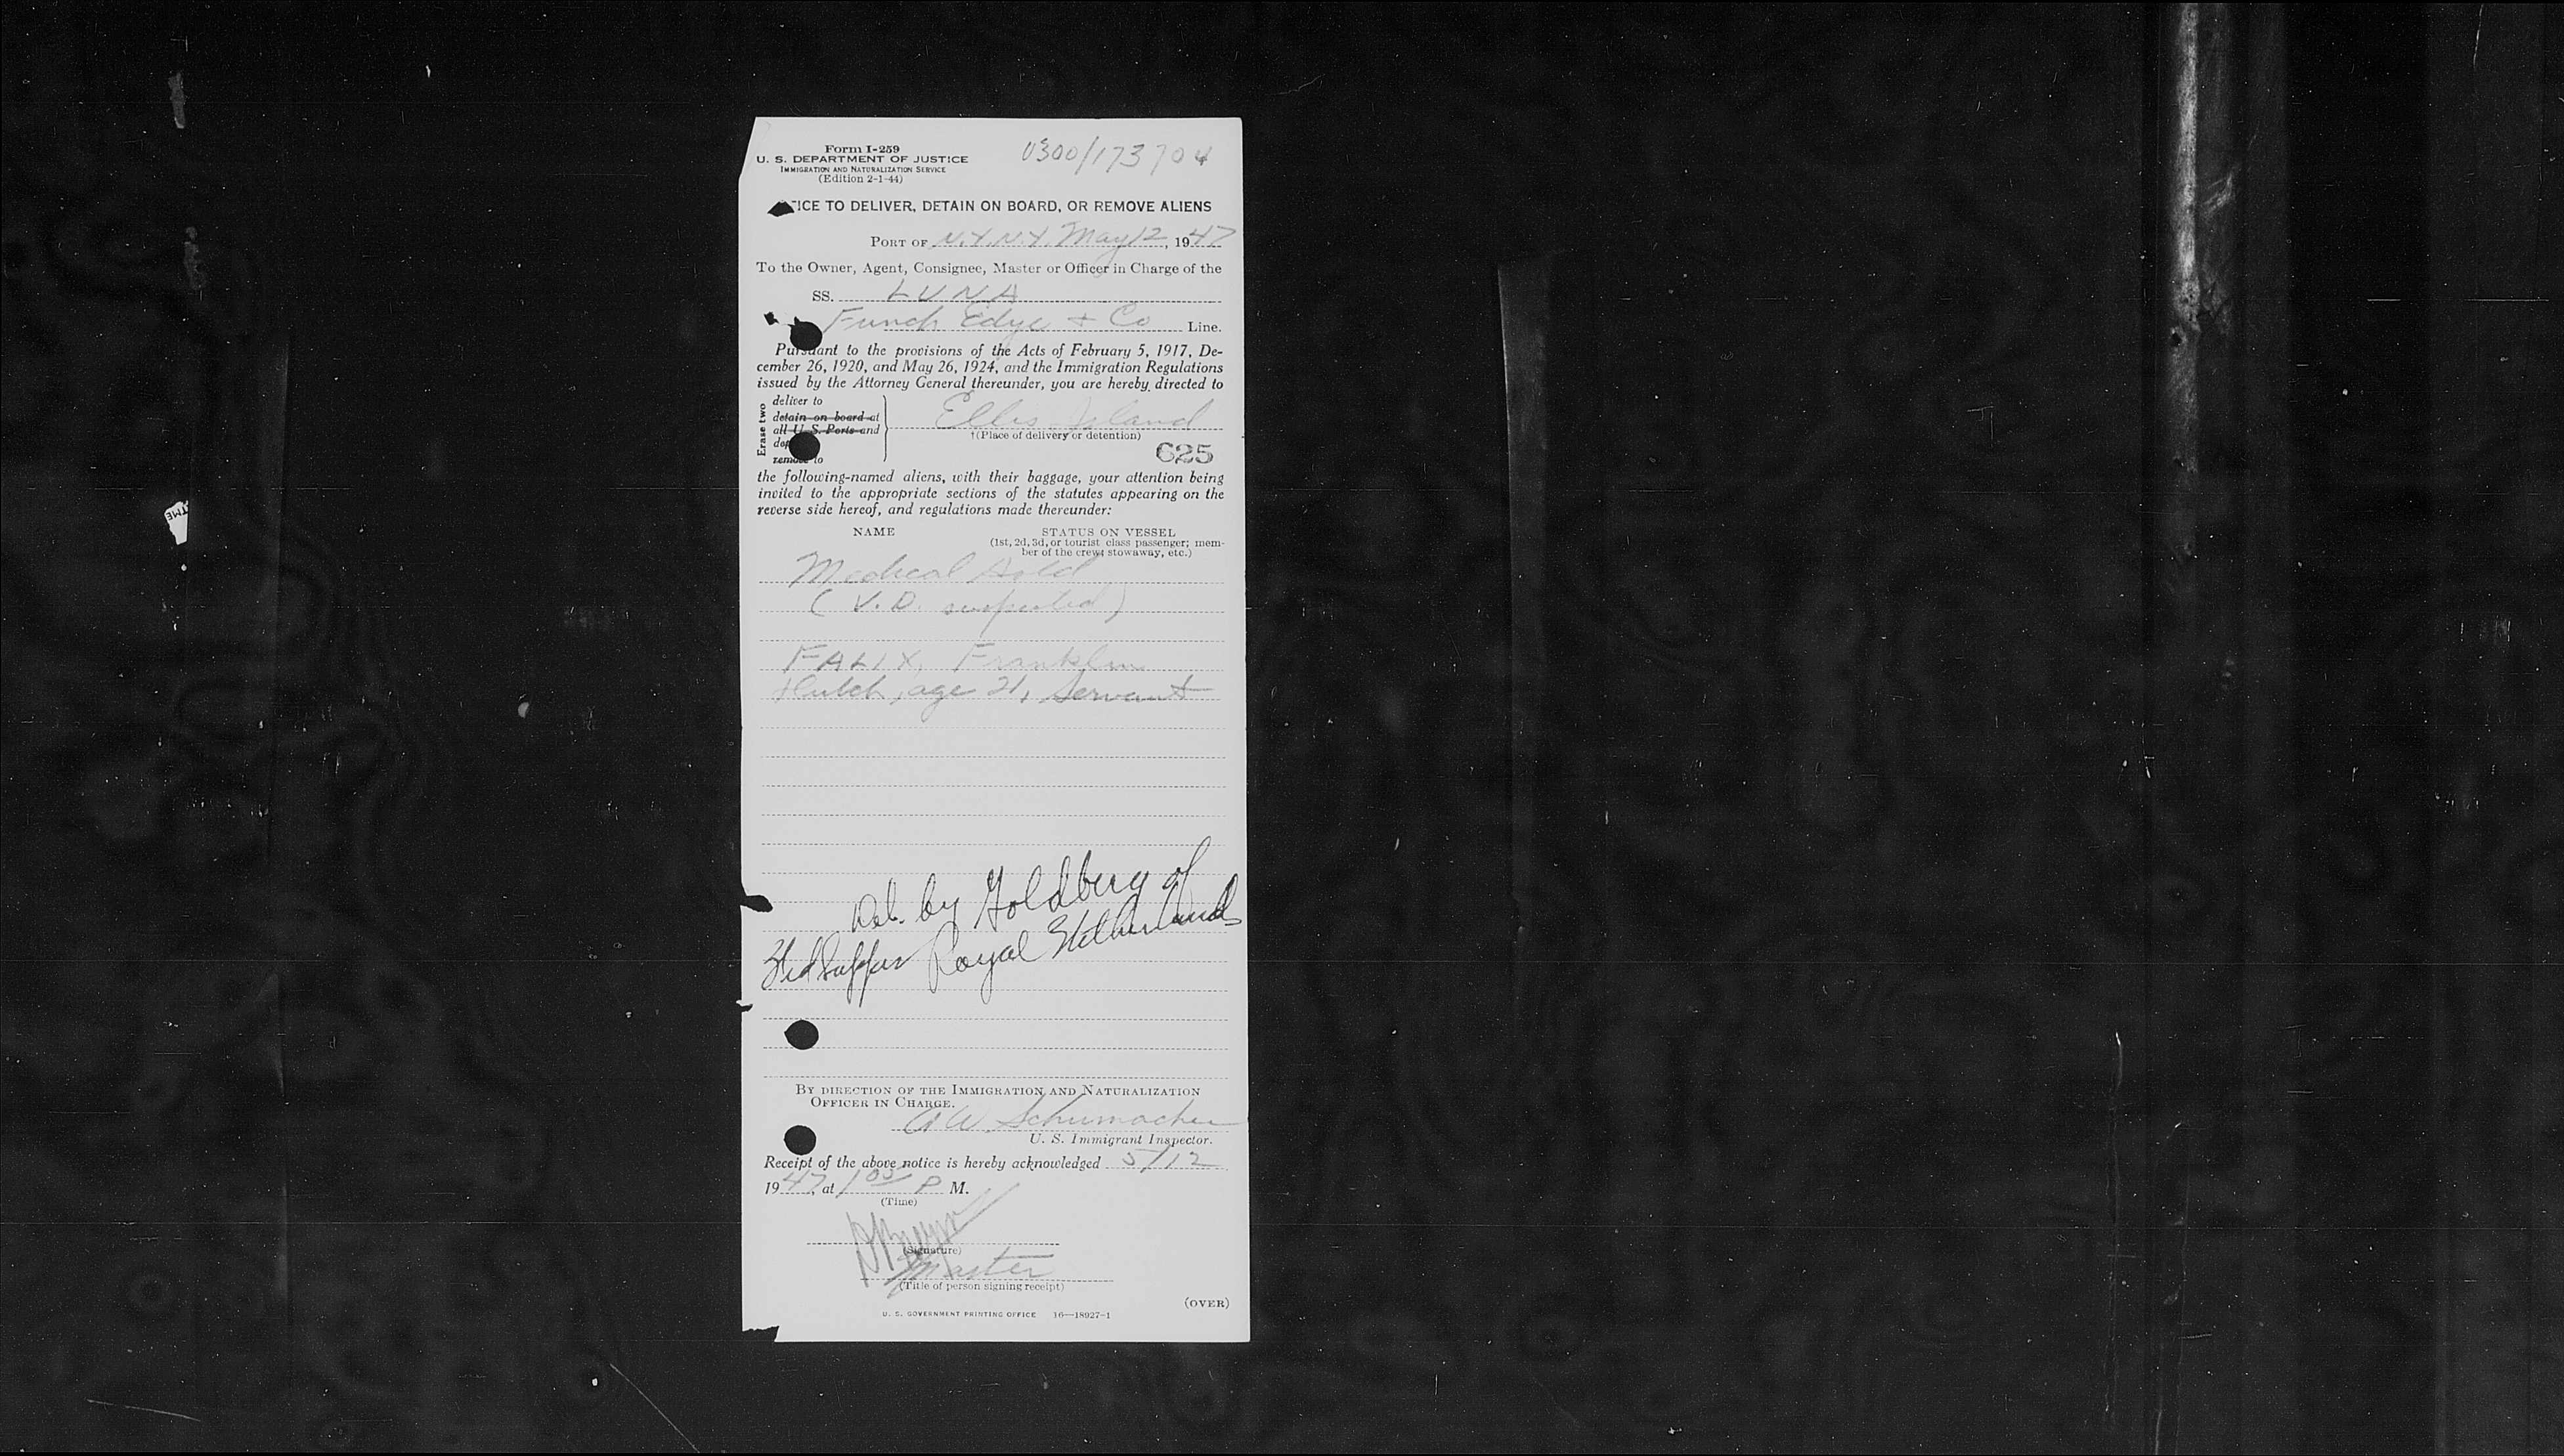 Form I-259
U. S. DEPARTMENT OF JUSTICE
IMMIGRATION AND NATURALIZATION SERVICE
(Edition 2-1-44)
0300/173704
ICE TO DELIVER, DETAIN ON BOARD, OR REMOVE ALIENS
PORT OF N.Y.N.Y. May 12, 1947
To the Owner, Agent, Consignee, Master or Officer in Charge of the
SS. LUNA
Funch Edye + Co Line.
Pursuant to the provisions of the Acts of February 5, 1917, De-
cember 26, 1920, and May 26, 1924, and the Immigration Regulations
issued by the Attorney General thereunder, you are hereby directed to
Erase two
deliver to
detain on board at
all U. S. Ports and
remove to
Ellis Island
†(Place of delivery or detention)
625
the following-named aliens, with their baggage, your attention being
invited to the appropriate sections of the statutes appearing on the
reverse side hereof, and regulations made thereunder:
NAME
STATUS ON VESSEL
(1st, 2d, 3d, or tourist class passenger; mem-
ber of the crew; stowaway, etc.)
Medical Hold
(V.D. suspected)
FALIX, Franklin
Dutch, age 21, Servant
Del. by Goldberg of
Royal Netherlands
BY DIRECTION OF THE IMMIGRATION AND NATURALIZATION
OFFICER IN CHARGE.
A W. Schumacher
U. S. Immigrant Inspector.
Receipt of the above notice is hereby acknowledged 5/12
1947, at 1 05 P M.
(Time)
(Signature)
Master
(Title of person signing receipt)
(OVER)
U. S. GOVERNMENT PRINTING OFFICE 16—18927-1